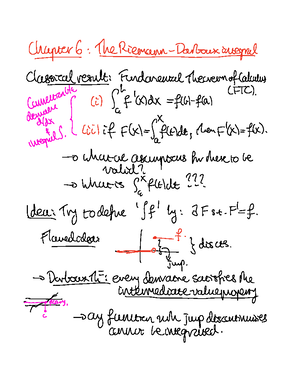 Chapter 6: The Riemann-Darboux integral
Classical result: Fundamental Theorem of Calculus
(FTC).
Connection b/w
derivative
d/dx
&
integral ∫.
(i) ∫ₐᵇ f'(x)dx = f(b)-f(a)
(ii) if F(x)=∫ₐˣ f(t)dt, then F'(x)=f(x).
→ what are assumptions for these to be
valid?
→ what is ∫ₐˣ f(t)dt ???
Idea: Try to define '∫f' by: ∃ F s.t. F'=f.
Flawed idea:
f
} discts.
jump.
→ Darboux Thm: every derivative satisfies the
intermediate value property
c
→ any function with jump discontinuities
cannot be integrated.